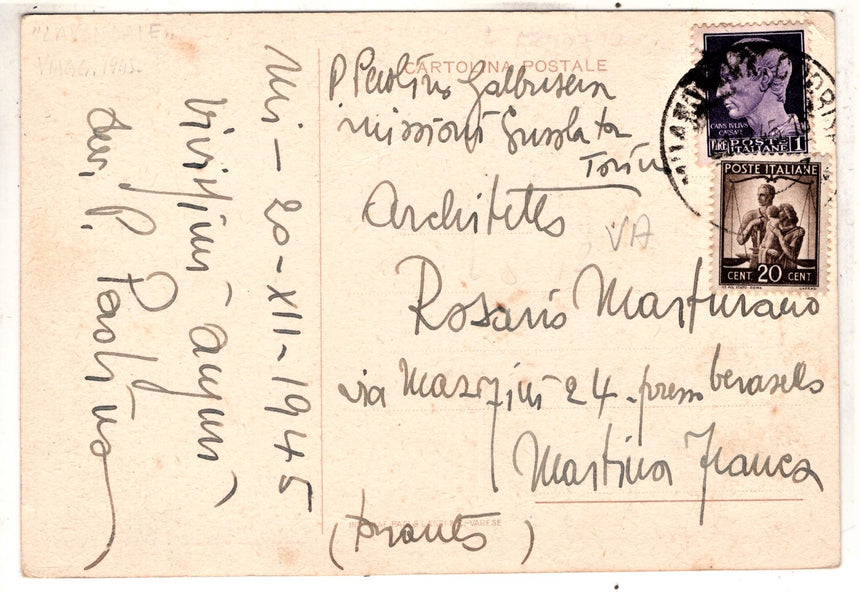 "LAVENDALE"
VIAGG. 1945.
Mi - 20-XII-1945
Vivissimi auguri
P. Paolino
CARTOLINA POSTALE
P Paolino Galbusera
missioni
Torino
Architetto
VA
Rosario Marturano
via Mazzini 24 - presso
Martina Franca
(Taranto)
VARESE
MILANO
CAIVS IVLIVS
CAESAR
LIRE POSTE ITALIANE 1
POSTE ITALIANE
CENT. 20 CENT.